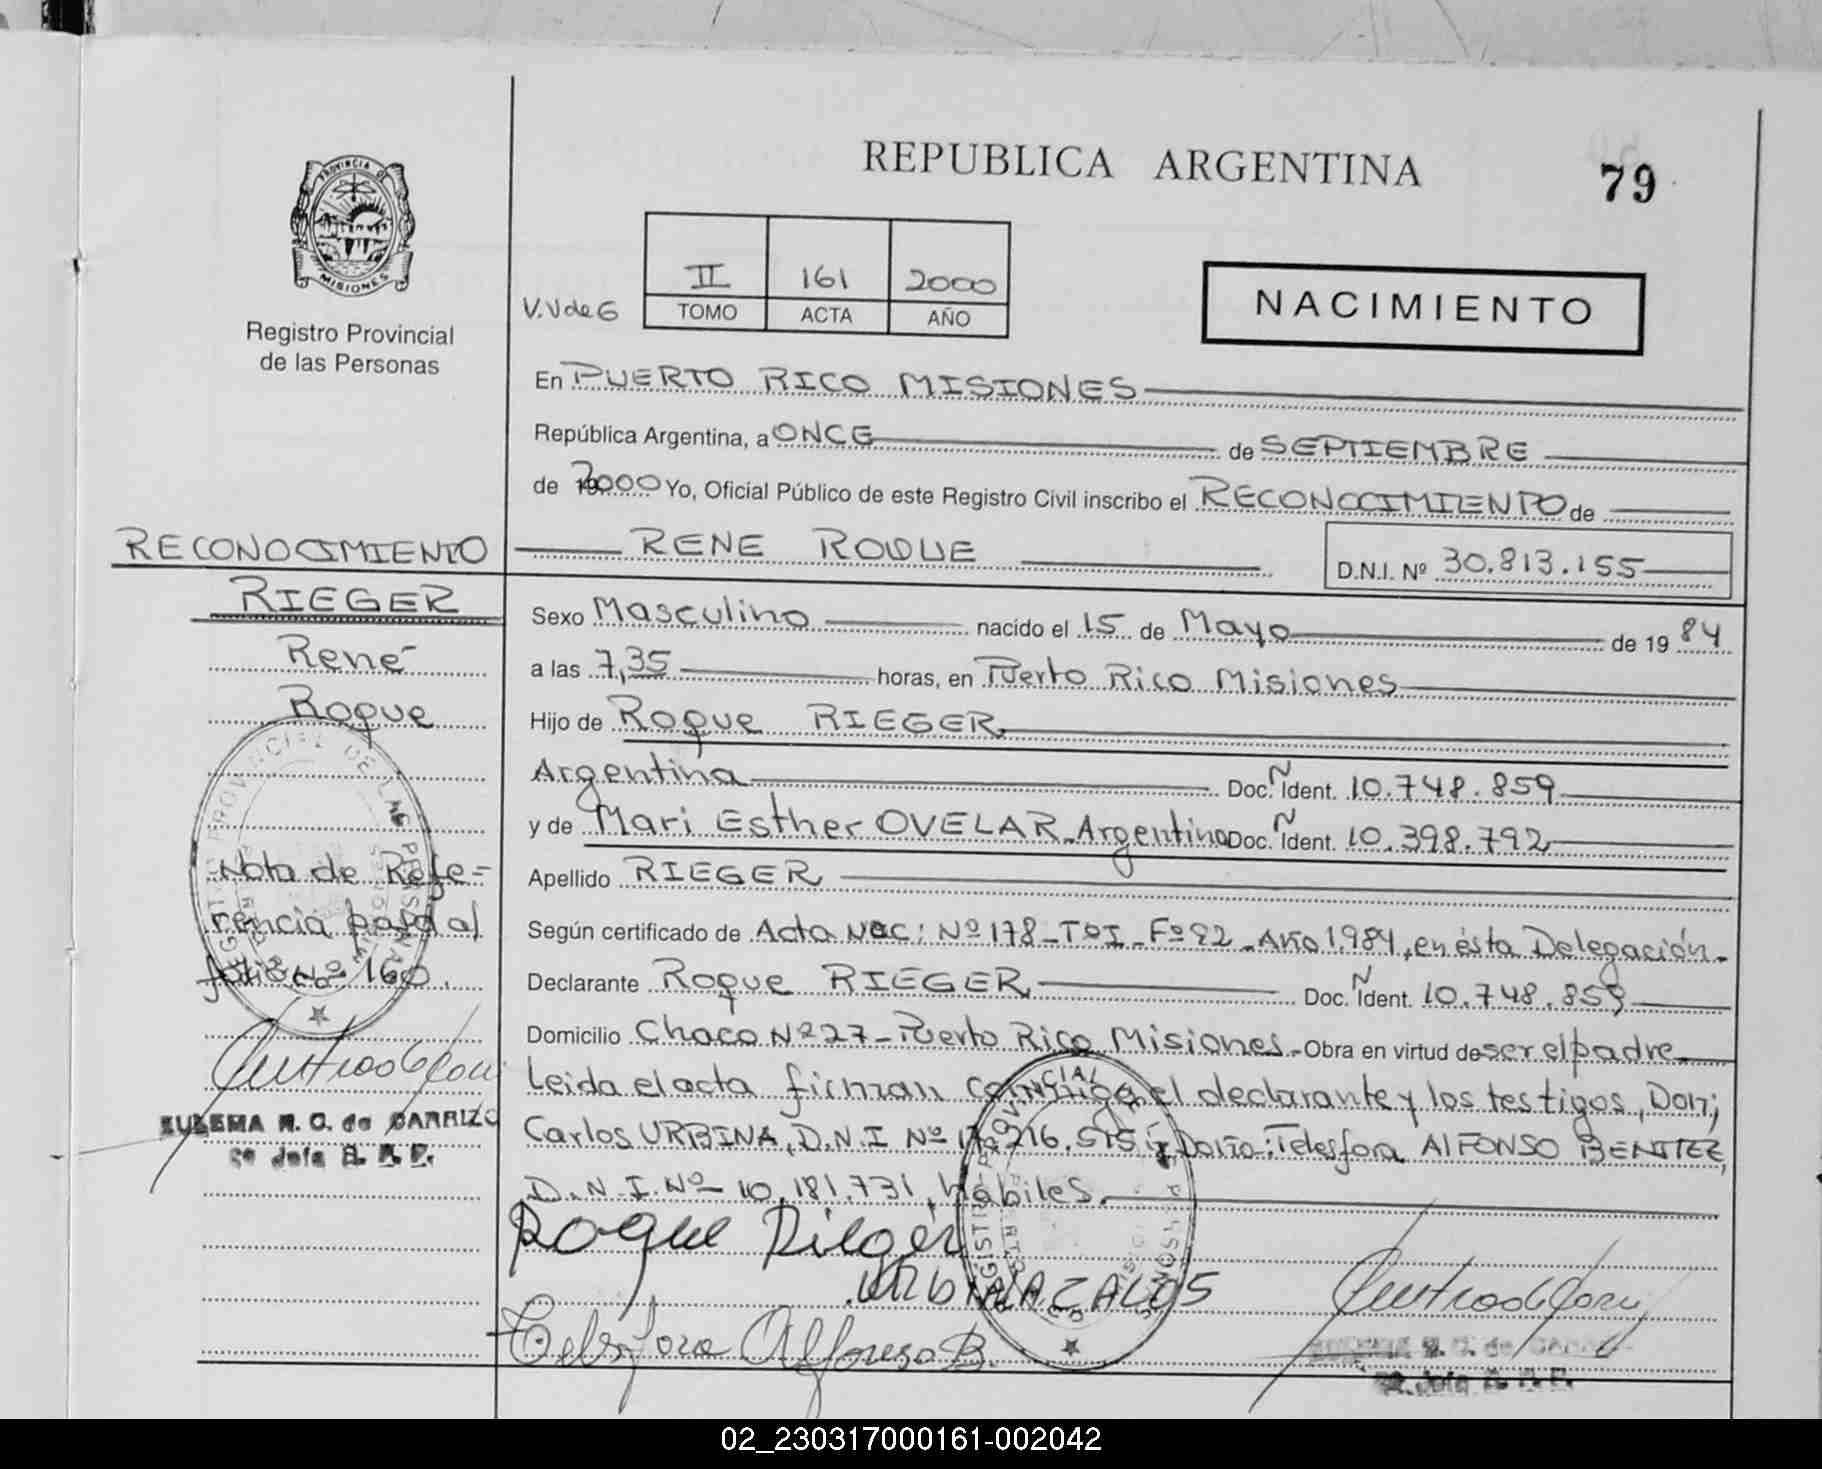 REPUBLICA ARGENTINA
79
PROVINCIA DE
MISIONES
Registro Provincial
de las Personas
V.V de G
II 161 2000
TOMO ACTA AÑO
NACIMIENTO
En PUERTO RICO MISIONES
República Argentina, a ONCE de SEPTIEMBRE
de 2000 Yo, Oficial Público de este Registro Civil inscribo el RECONOCIMIENTO de
RENE ROQUE D.N.I. Nº 30.813.155
Sexo Masculino nacido el 15 de Mayo de 19 84
a las 7,35 horas, en Puerto Rico Misiones
Hijo de Roque RIEGER
Argentina Doc. N Ident. 10.748.859
y de Mari Esther OVELAR - Argentina Doc. N Ident. 10.398.792
Apellido RIEGER
Según certificado de Acta NAC: Nº 178 - Tº I - Fº 92 - Año 1.984, en ésta Delegación.
Declarante Roque RIEGER Doc. N Ident. 10.748.859
Domicilio Chaco Nº 227 - Puerto Rico Misiones - Obra en virtud de ser el padre
Leida el acta firman conmigo el declarante y los testigos, Don;
Carlos URBINA, D.N.I Nº 216.515 y Doña: Telesfora AlFONSO BENITEZ,
D.N.I. Nº 10.181.731, habiles.
Roque Rieger
URbINA CALOS
Telesfora Alfonso B.
RECONOCIMIENTO
RIEGER
René
Roque
Nota de Refe-
rencia pasa al
folio Nº 160.
ZULEMA R. C. de CARRIZO
2º Jefa R. P. P.
ZULEMA R. C. de CARRIZO
2º Jefa R. P. P.
02_230317000161-002042